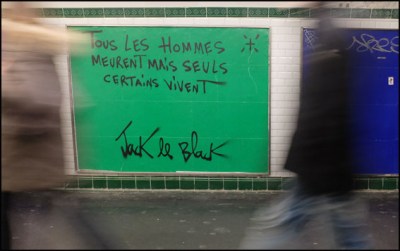 Tous les hommes
meurent mais seuls
certains vivent
Jack le Black